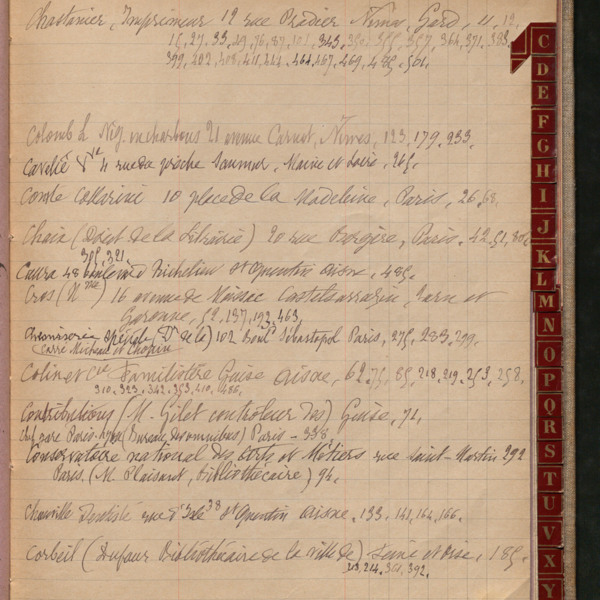 Chastanier, Imprimeur 12 rue Pradier Nîmes, Gard, 11, 12,
15, 27, 33, 49, 76, 87, 101, 343, 350, 355, 357, 364, 371, 393,
399, 402, 408, 411, 444, 464, 467, 469, 485, 501.
Colomb L Nég. en charbons 21 avenue Carnot, Nîmes, 123, 179, 233.
4 rue du prêche Saumur, Maine et Loire, 265.
Comte 10 place de la Madeleine, Paris, 26, 68.
Chaix (Dépt de la Librairie) 20 rue Bergère, Paris, 42, 51, 80,
305, 321
Caura 48 Richelieu St Quentin Aisne, 485.
Cros (N 16 avenue de Moissac Castelsarrazin, Tarn et
Garonne, 52, 137, 193, 463,
Chemiserie spéciale (D de la) 102 Boul Sébastopol Paris, 275, 283, 299.
Carré Micheau et Chopin
Colin et Cie Familistère Guise Aisne, 62, 75, 85, 218, 219, 253, 258,
310, 323, 342, 353, 410, 486.
Contributions (M. Gilet controleur des) Guise, 71,
Chef gare Paris-Nord (Bureau des omnibus) Paris - 338
Conservatoire national des Arts et Métiers rue Saint-Martin 292
Paris, (M. Plaisant, bibliothécaire) 94.
Chauville Dentiste rue d'Isle 38 St Quentin Aisne, 133, 141, 164, 166,
Corbeil (Dufaur Bibliothécaire de la ville de) Seine et Oise, 185,
213, 214, 361, 392,
C
D
E
F
G
H
I
J
K
L
M
N
O
P
Q
R
S
T
U
V
X
Y